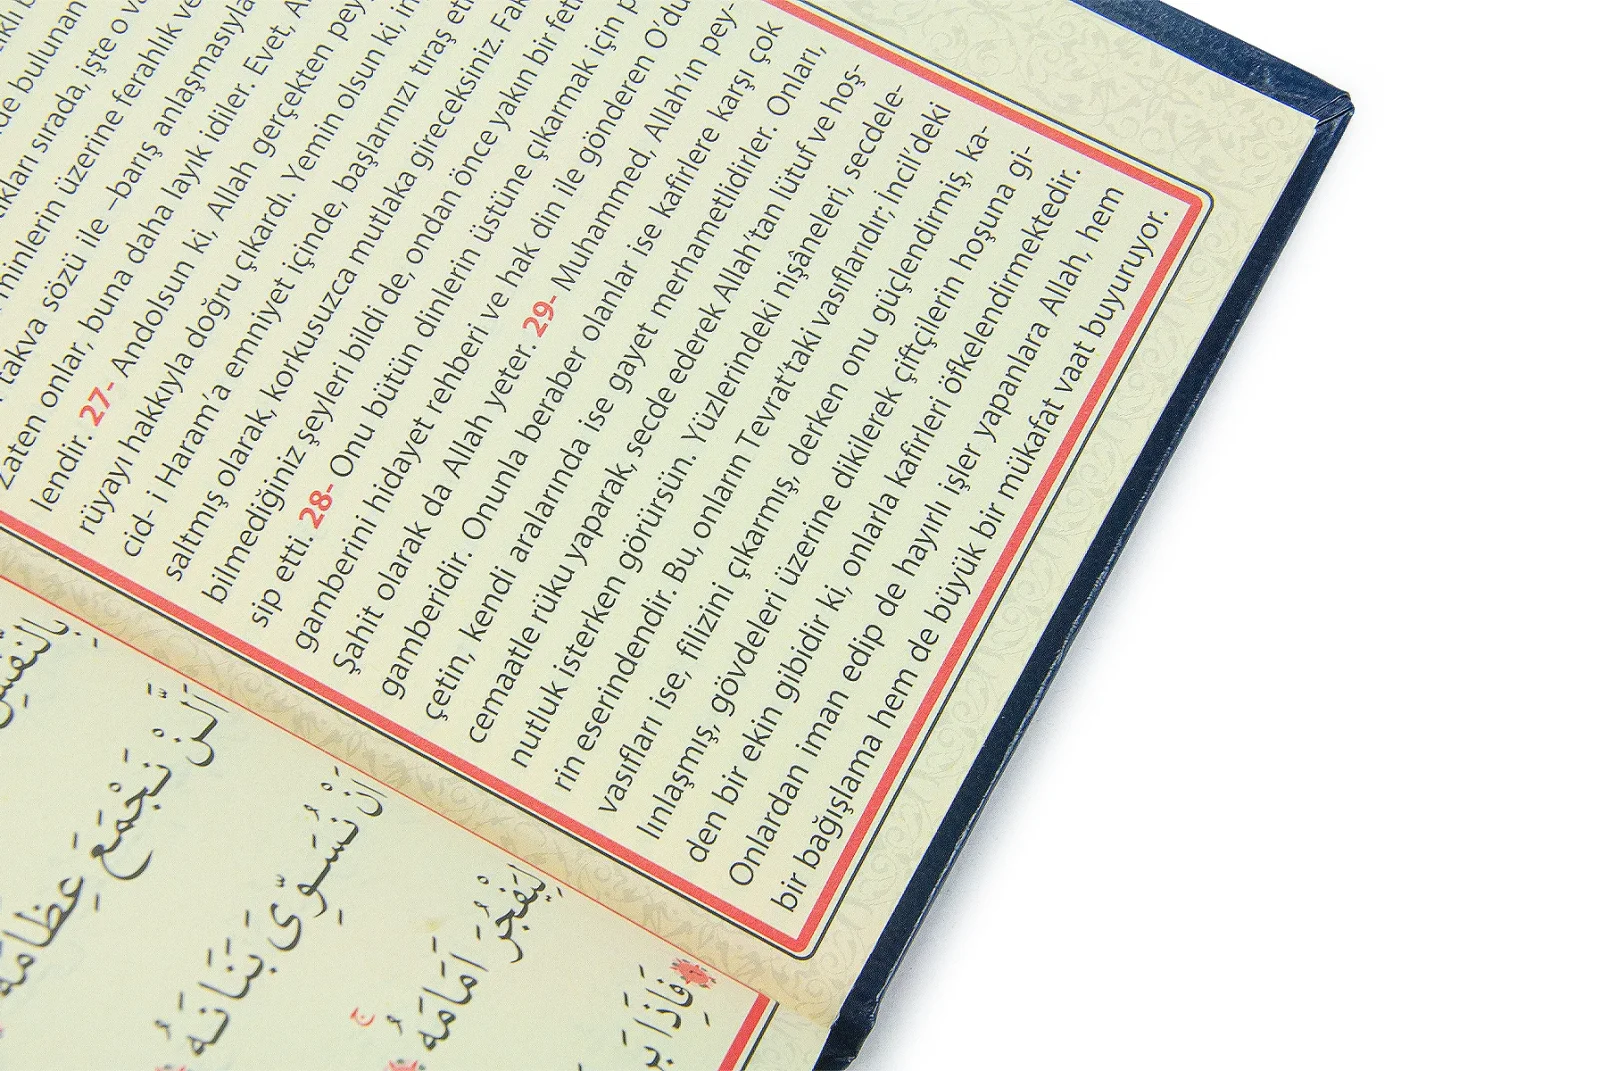 de bulunan
ıkları sırada, işte o
minlerin üzerine ferahlık ve
takva sözü ile –barış anlaşmasıyla
zaten onlar, buna daha layık idiler. Evet,
lendir. 27- Andolsun ki, Allah gerçekten
rüyayı hakkıyla doğru çıkardı. Yemin olsun ki,
cid- i Haram’a emniyet içinde, başlarınızı tıraş
saltmış olarak, korkusuzca mutlaka gireceksiniz.
bilmediğiniz şeyleri bildi de, ondan önce yakın bir
sip etti. 28- Onu bütün dinlerin üstüne çıkarmak için
gamberini hidayet rehberi ve hak din ile gönderen O’du
Şahit olarak da Allah yeter. 29- Muhammed, Allah’ın pey-
gamberidir. Onunla beraber olanlar ise kafirlere karşı çok
çetin, kendi aralarında ise gayet merhametlidirler. Onları,
cemaatle rüku yaparak, secde ederek Allah’tan lütuf ve hoş-
nutluk isterken görürsün. Yüzlerindeki nişâneleri, secdele-
rin eserindendir. Bu, onların Tevrat’taki vasıflarıdır; İncil’deki
vasıfları ise, filizini çıkarmış, derken onu güçlendirmiş, ka-
lınlaşmış, gövdeleri üzerine dikilerek çiftçilerin hoşuna gi-
den bir ekin gibidir ki, onlarla kafirleri öfkelendirmektedir.
Onlardan iman edip de hayırlı işler yapanlara Allah, hem
bir bağışlama hem de büyük bir mükafat vaat buyuruyor.
اَلَّنْ نَجْمَعَ عِظَامَهُ
اَنْ نُسَوِّىَ بَنَانَهُ
لِيَفْجُرَ اَمَامَهُ
فَاِذَا